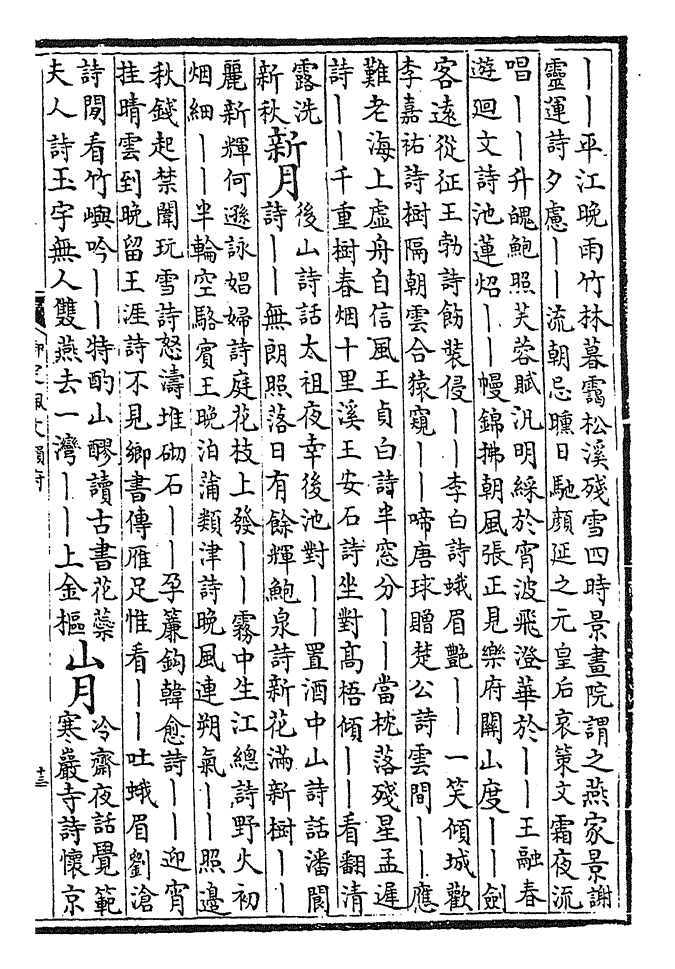 ｜｜平江晚雨竹林暮靄松溪殘雪四時景畫院謂之燕家景謝
靈運詩夕慮｜｜流朝忌曛日馳顏延之元皇后哀策文霜夜流
唱｜｜升魄鮑照芙蓉賦汎明綵於宵波飛澄華於｜｜王融春
遊廻文詩池蓮炤｜｜幔錦拂朝風張正見樂府關山度｜｜劍
客遠從征王勃詩飭裝侵｜｜李白詩蛾眉艷｜｜一笑傾城歡
李嘉祐詩樹隔朝雲合猿窺｜｜啼唐球贈楚公詩雲間｜｜應
難老海上虛舟自信風王貞白詩半窓分｜｜當枕落殘星孟遲
詩｜｜千重樹春烟十里溪王安石詩坐對高梧傾｜｜看翻清
露洗
新秋
新月
後山詩話太祖夜幸後池對｜｜置酒中山詩話潘閬
詩｜｜無朗照落日有餘輝鮑泉詩新花滿新樹｜｜
麗新輝何遜詠娼婦詩庭花枝上發｜｜霧中生江總詩野火初
烟細｜｜半輪空駱賓王晚泊蒲類津詩晚風連朔氣｜｜照邊
秋錢起禁闈玩雪詩怒濤堆砌石｜｜孕簾鈎韓愈詩｜｜迎宵
挂晴雲到晚留王涯詩不見鄉書傳雁足惟看｜｜吐蛾眉劉滄
詩閒看竹嶼吟｜｜特酌山醪讀古書花蘂
夫人詩玉宇無人雙燕去一灣｜｜上金樞
山月
冷齋夜話覺範
寒巖寺詩懷京
御定佩文韻府
十三